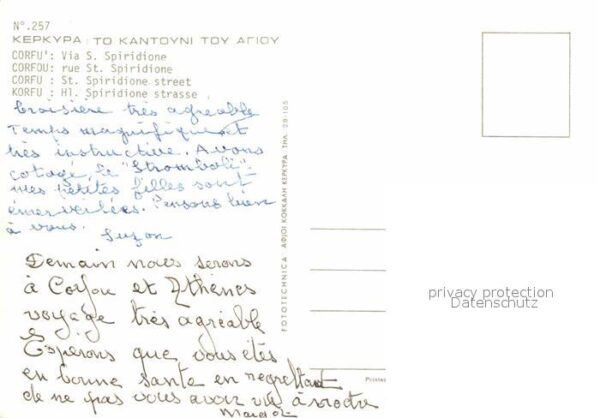 N°.257
ΚΕΡΚΥΡΑ: ΤΟ ΚΑΝΤΟΥΝΙ ΤΟΥ ΑΓΙΟΥ
CORFU': Via S. Spiridione
CORFOU: rue St. Spiridione
CORFU : St. Spiridione street
KORFU : Hl. Spiridione strasse
Croisière très agréable
Temps magnifique et
très instructive. Avons
cotoyé le "Stromboli"
mes petites filles sont
émerveilées. Pensons bien
à vous.
Suzon
Demain nous serons
à Corfou et Athènes
voyage très agréable
Esperons que vous êtes
en bonne santé en regrettant
de ne pas vous avoir vue à notre
FOTOTECHNICA ΑΦΙΟΙ ΚΟΚΚΑΛΗ ΚΕΡΚΥΡΑ ΤΗΛ 29.105
Printed
privacy protection
Datenschutz